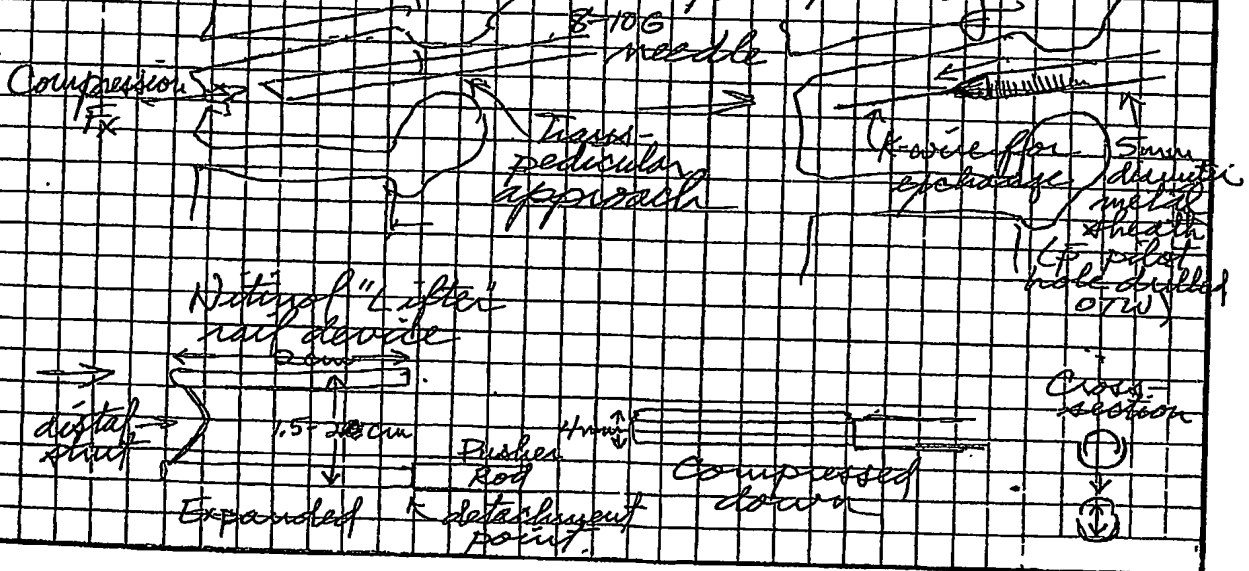 8-10G
needle
Compression
Fx
Trans-
pedicular
approach
K-wire for
exchange
5mm
diameter
metal
sheath
pilot
hole drilled
OTW)
Nitinol "Lifter"
rail device
2 cm
distal
strut
1.5-
cm
Expanded
Pusher
Rod
detachment
point.
4mm
Compressed
down
Cross-
section